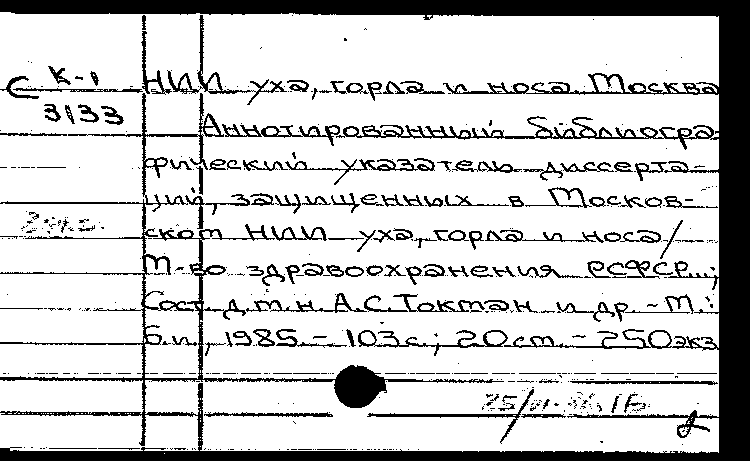 С К-1 НИИ уха, горла и носа. Москва
3133
Аннотированный библиогра-
фический указатель диссерта-
ций, защищенных в Москов-
ском НИИ уха, горла и носа/
М-во здравоохранения РСФСР...;
Сост. д.м.н. А.С.Токман и др. - М.:
б.и., 1985. - 103с.; 20см. - 250экз
2 экз.